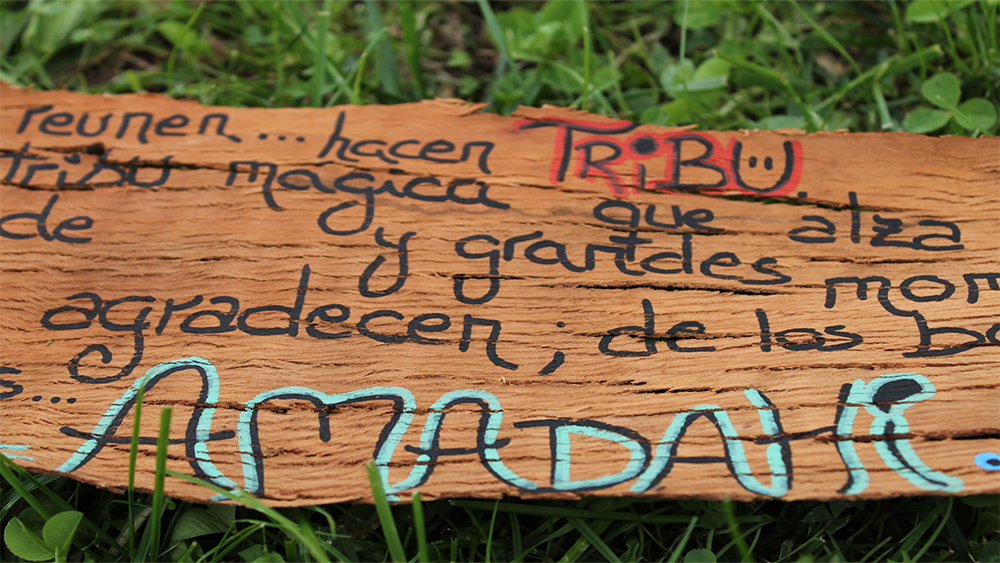 reunen... hacen TRiBU
tribu magica que alza
de y grandes mom
agradecen ; de las bo
s... AMADAHi